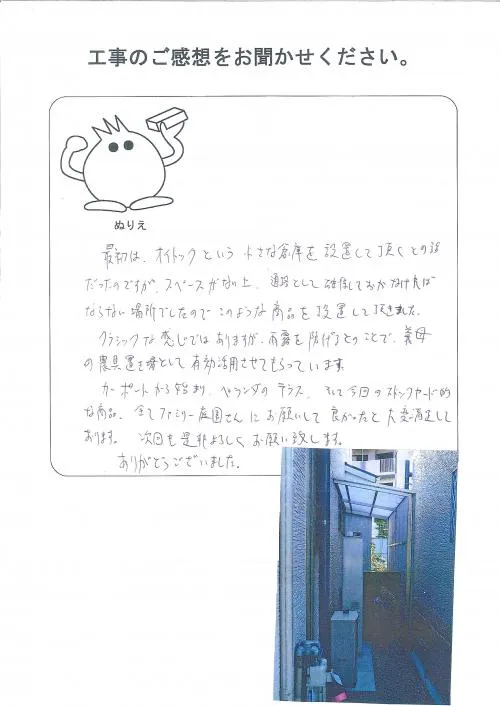 工事のご感想をお聞かせください。
ぬりえ
最初は、オイトックという 小さな倉庫を設置して頂くとの話
だったのですが、スペースがない上、通路として確保しておかなければ
ならない場所でしたので このような商品を設置して頂きました。
クラシックな感じではありますが、雨露を防げるとのことで、義母
の農具置き場として有効活用させてもらっています。
カーポートから始まり、ベランダのテラス、そして今回のストックヤード的
な商品、全てファミリー庭園さんにお願いして良かったと大変満足して
おります。 次回も是非よろしくお願い致します。
ありがとうございました。